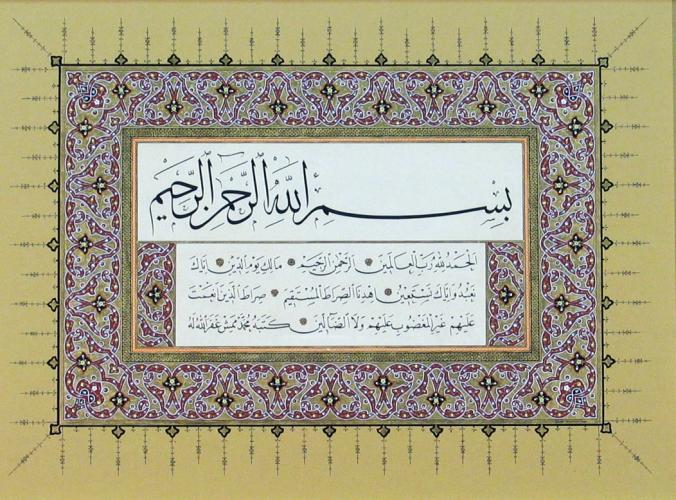 بِسْمِ اللهِ الرَّحْمٰنِ الرَّحِيمِ
اَلْحَمْدُ لِلّٰهِ رَبِّ الْعَالَمِينَ اَلرَّحْمٰنِ الرَّحِيمِ مَالِكِ يَوْمِ الدِّينِ اِيَّاكَ
نَعْبُدُ وَاِيَّاكَ نَسْتَعِينُ اِهْدِنَا الصِّرَاطَ الْمُسْتَقِيمَ صِرَاطَ الَّذِينَ اَنْعَمْتَ
عَلَيْهِمْ غَيْرِ الْمَغْضُوبِ عَلَيْهِمْ وَلَا الضَّالِّينَ كَتَبَهُ مُحَمَّد مَمِش غَفَرَ اللهُ لَهُ